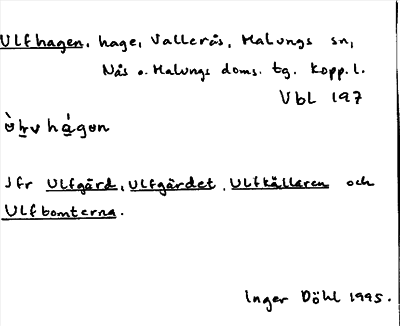 Ulfhagen, hage, Vallerås, Malungs sn,
Nås o. Malungs doms. tg. Kopp. l.
VbL 197
ùḥv hág̱ɵn
Jfr Ulfgärd, Ulfgärdet, Ulfkällaren och
Ulfbomterna.
Inger Döhl 1995.